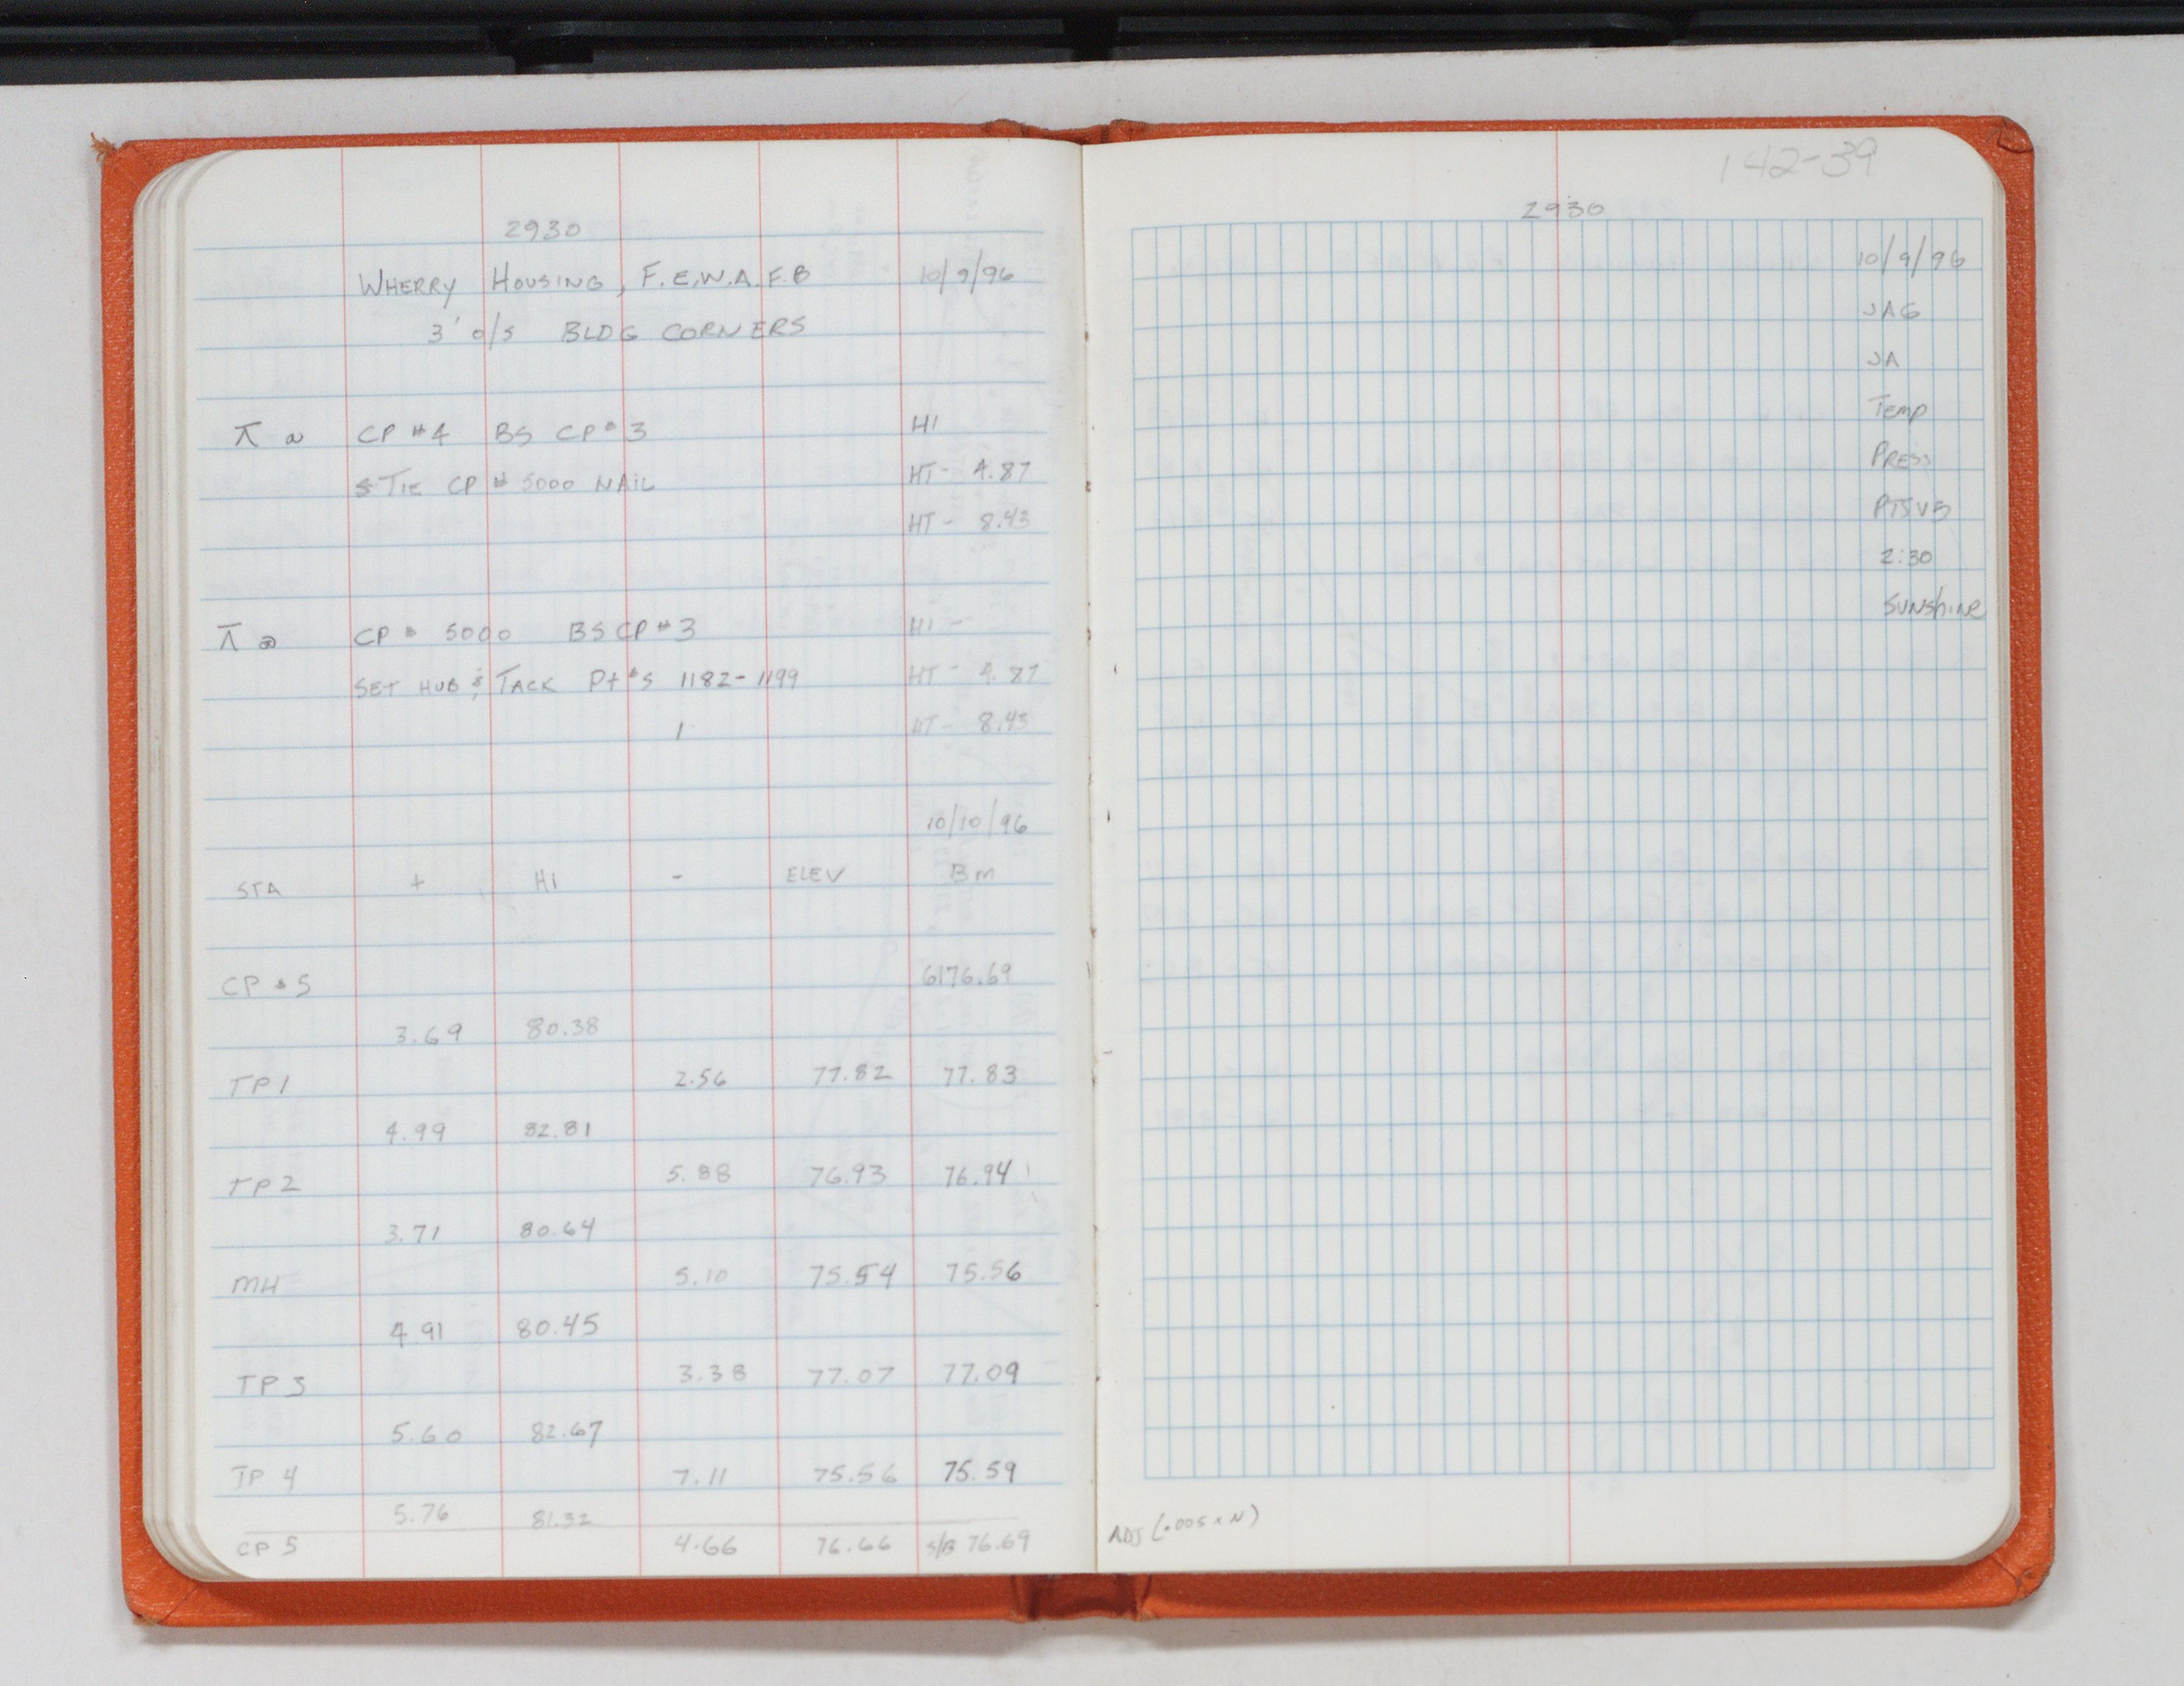 2930
WHERRY HOUSING, F.E.W.A.F.B 10/9/96
3' o/s BLDG CORNERS
CP #4 BS CP#3 HI
& TIE CP # 5000 NAIL HT- 4.87
HT- 8.43
CP # 5000 BS CP#3 HI-
SET HUB & TACK Pt#s 1182-1199 HT- 4.87
1 HT- 8.43
10/10/96
STA + HI - ELEV BM
CP #5 6176.69
3.69 80.38
TP1 2.56 77.82 77.83
4.99 82.81
TP2 5.88 76.93 76.94
3.71 80.64
MH 5.10 75.54 75.56
4.91 80.45
TP3 3.38 77.07 77.09
5.60 82.67
TP 4 7.11 75.56 75.59
5.76 81.32
CP 5 4.66 76.66 S/B 76.69
142-39
2930
10/9/96
JAG
JA
Temp
PRESS
PTSV5
2:30
Sunshine
ADJ (.005 x N)